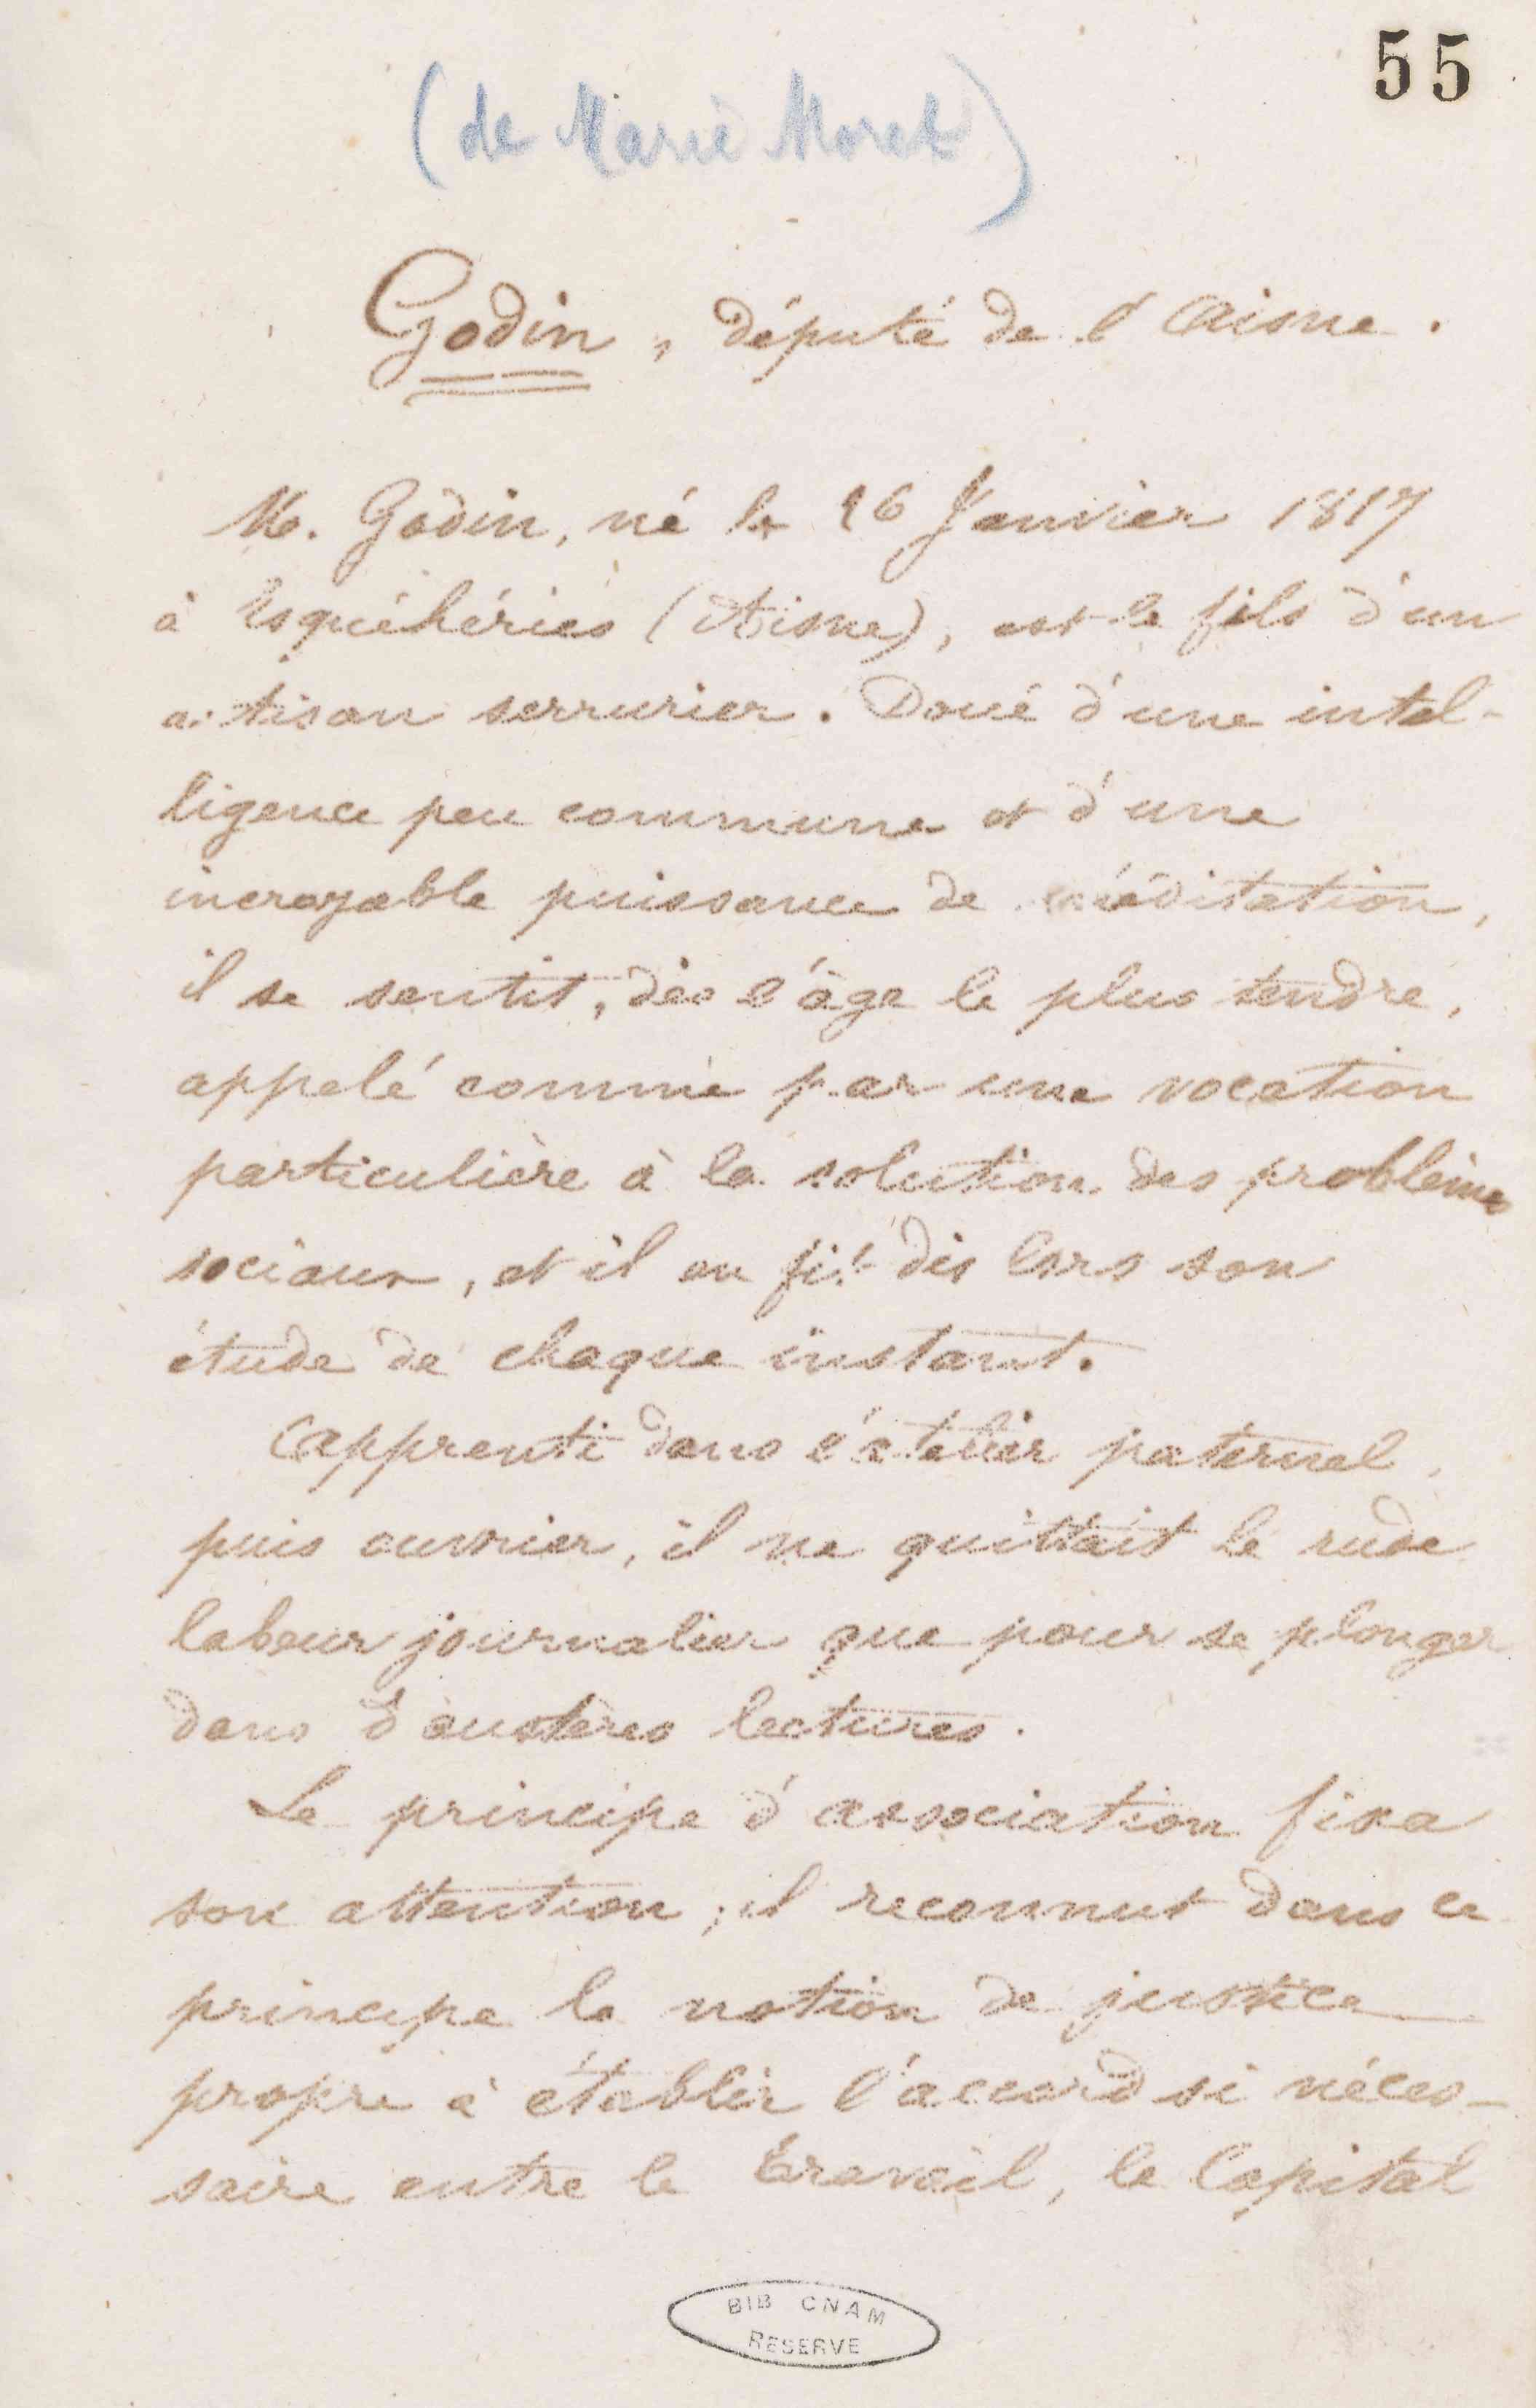 55
(de Marie Moret)
Godin, député de l'Aisne.
M. Godin, né le 26 Janvier 1817
à Esquéhéries (Aisne), est le fils d'un
artisan serrurier. Doué d'une intel-
ligence peu commune et d'une
incroyable puissance de méditation,
il se sentit, dès l'âge le plus tendre,
appelé comme par une vocation
particulière à la solution des problèmes
sociaux, et il en fit dès lors son
étude de chaque instant.
Apprenti dans l'atelier paternel,
puis ouvrier, il ne quittait le rude
labeur journalier que pour se plonger
dans d'austères lectures.
Le principe d'association fixa
son attention ; il reconnut dans ce
principe la notion de justice
propre à établir l'accord si néces-
saire entre le Travail, le Capital
BIB CNAM
RESERVE